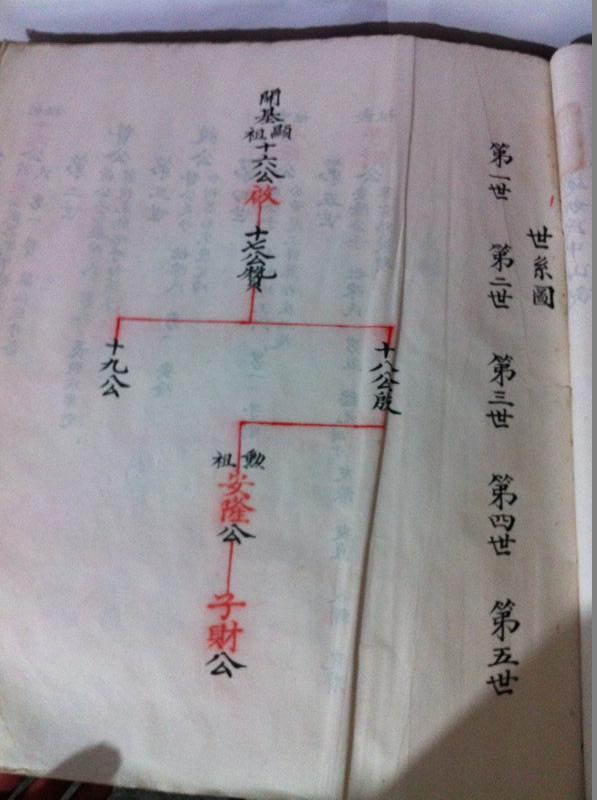 世系圖
第一世
第二世
第三世
第四世
第五世
開基
顯祖
十六公啟
十七公贊
十八公啟
十九公
勲祖
安隆公
子財公